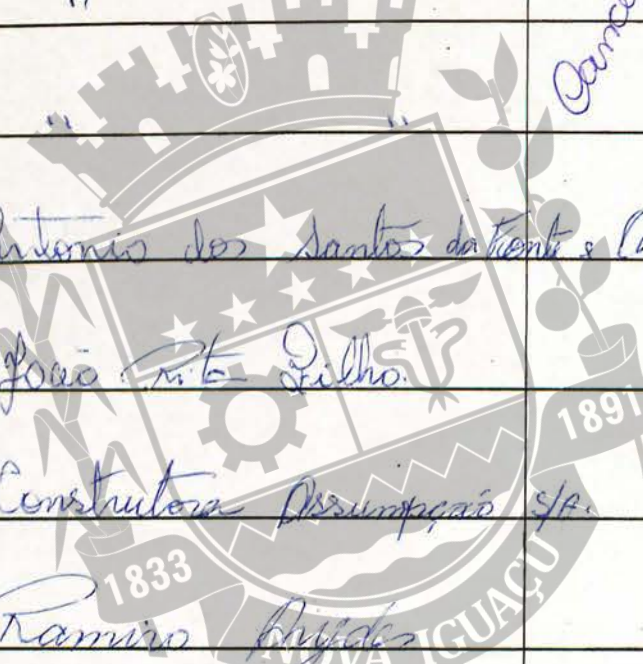 "
" "
Antonio dos Santos da Fonte &
João Rita Filho.
Construtora Assumpção S/A.
Ramiro
1891
1833
NOVA IGUAÇU